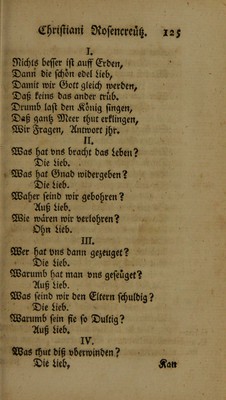 Christiani Rosencreütz. 125
I.
Nichts besser ist auff Erden,
Dann die schön edel Lieb,
Damit wir Gott gleich werden,
Daß keins das ander trüb.
Drumb last den König singen,
Daß gantz Meer thut erklingen,
Wir Fragen, Antwort jhr.
II.
Was hat vns bracht das Leben?
Die Lieb.
Was hat Gnad widergeben?
Die Lieb.
Waher seind wir gebohren?
Auß Lieb.
Wie wären wir verlohren?
Ohn Lieb.
III.
Wer hat vns dann gezeuget?
Die Lieb.
Warumb hat man vns geseüget?
Auß Lieb.
Was seind wir den Eltern schuldig?
Die Lieb.
Warumb sein sie so Dultig?
Auß Lieb.
IV.
Was thut diß vberwinden?
Die Lieb.
Kan